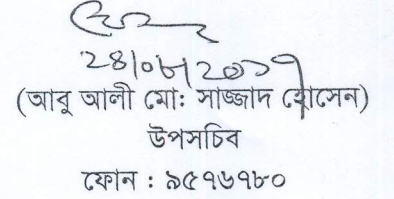 ২৪/০৮/২০১৭
(আবু আলী মো: সাজ্জাদ হোসেন)
উপসচিব
ফোন : ৯৫৭৬৭৮০